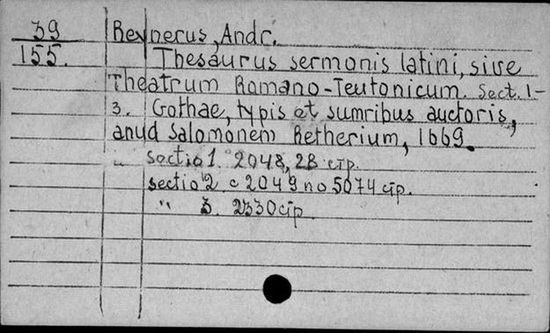 39 Beynerus, Andr.
155. Thesaurus sermonis latini, sive
Theatrum Romano-Teutonicum. Sect. 1-
3. Gothae, typis et sumribus auctoris,
apud Salomonem Retherium, 1669.
" sectio 1. 2048, 28 стр.
sectio 2 с 2049 по 5074 стр.
" 3. 2330 стр.